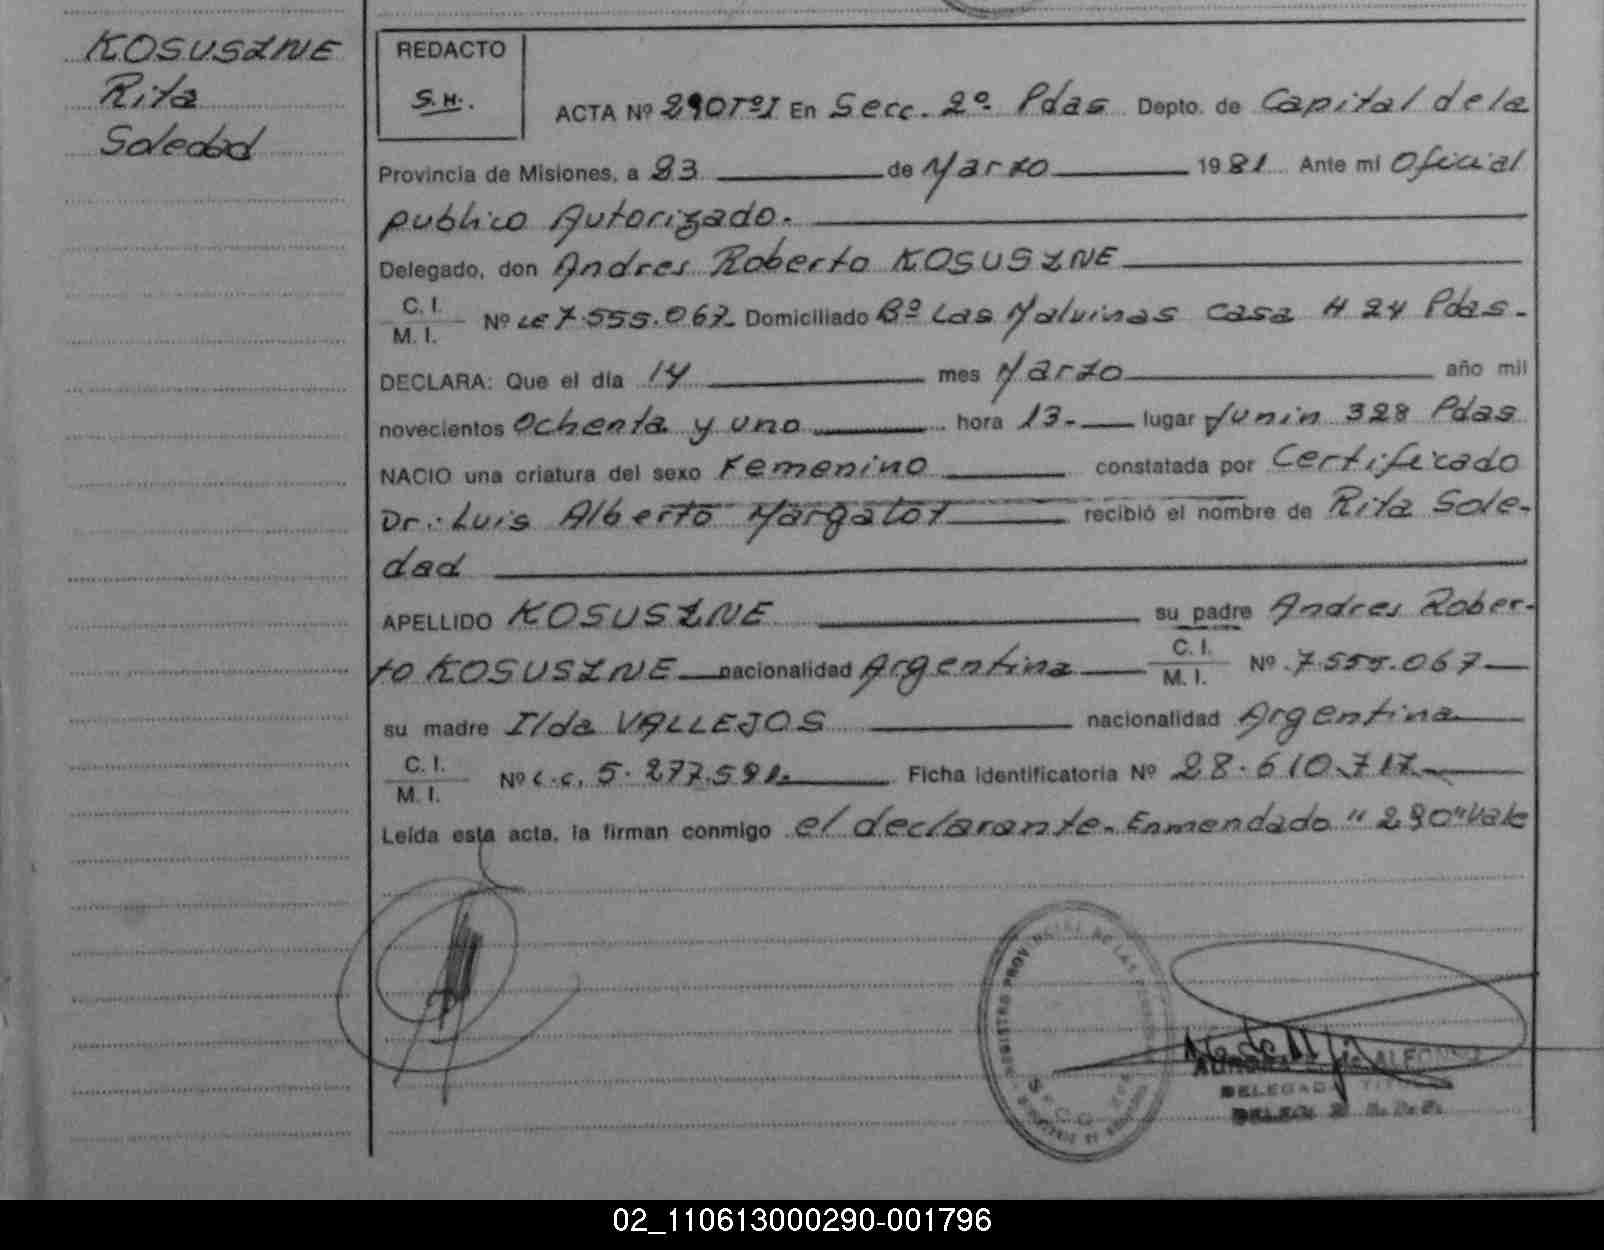 KOSUSZNE
Rita
Soledad
REDACTO
S.H.
ACTA Nº 290TºI En Secc. 2º Pdas Depto. de Capital de la
Provincia de Misiones, a 23 de Marzo 1981 Ante mi Oficial
publico Autorizado.
Delegado, don Andres Roberto KOSUSZNE
C. I.
M. I. Nº LE 7.555.067 Domiciliado Bº Las Malvinas casa H 24 Pdas.
DECLARA: Que el día 14 mes Marzo año mil
novecientos Ochenta y uno hora 13.- lugar Junin 328 Pdas
NACIO una criatura del sexo Femenino constatada por Certificado
Dr. Luis Alberto Margalot recibió el nombre de Rita Sole-
dad
APELLIDO KOSUSZNE su padre Andres Rober-
to KOSUSZNE nacionalidad Argentina C. I.
M. I. Nº 7.555.067
su madre Ilda VALLEJOS nacionalidad Argentina
C. I.
M. I. Nº L.C. Ficha identificatoria Nº 28.610.717
Leída esta acta, la firman conmigo el declarante. Enmendado "290" Vale
REGISTRO PROVINCIAL DE LAS
ALFONSO
DELEGADA TIT
02_110613000290-001796